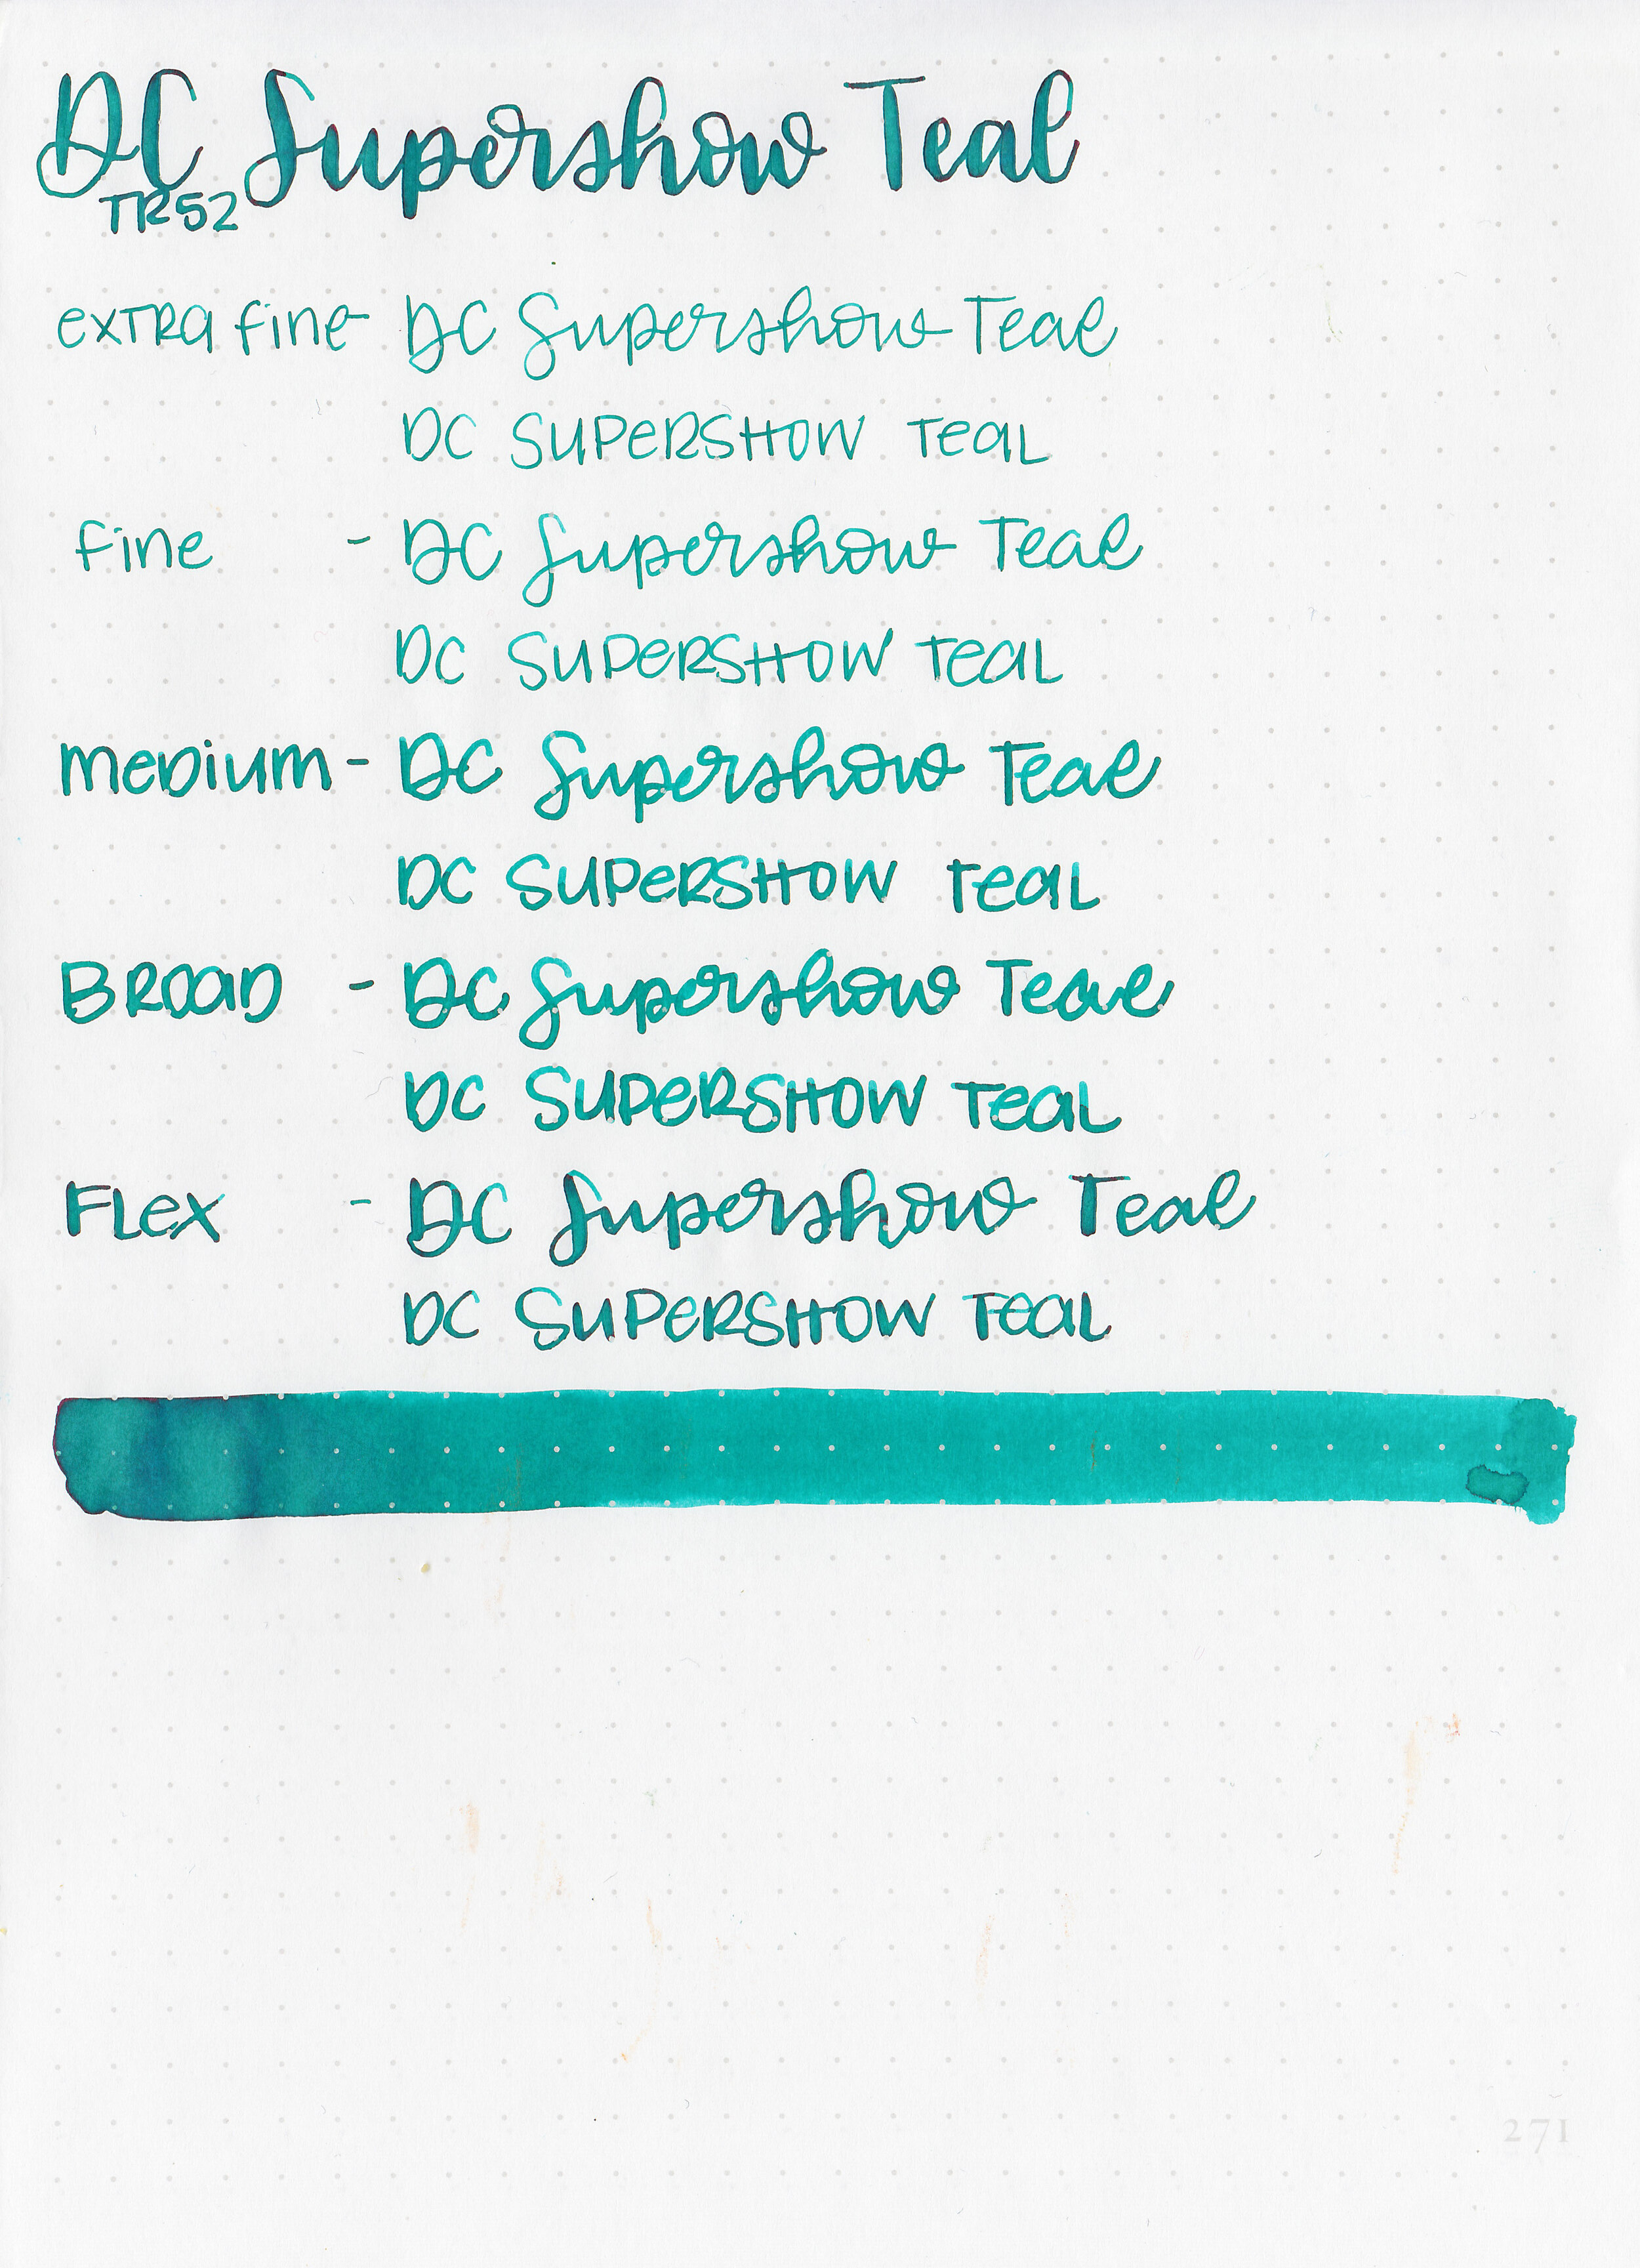 DC Supershow Teal
TR52
extra fine - DC Supershow Teal
DC SUPERSHOW TEAL
fine - DC Supershow Teal
DC SUPERSHOW TEAL
medium - DC Supershow Teal
DC SUPERSHOW TEAL
BROAD - DC Supershow Teal
DC SUPERSHOW TEAL
FLEX - DC Supershow Teal
DC SUPERSHOW TEAL
271